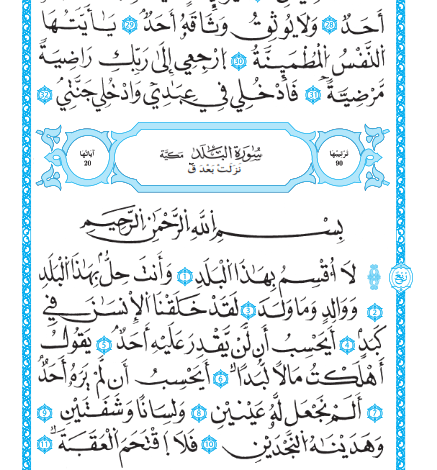 أَحَدٌ 28 وَلَا يُوثِقُ وَثَاقَهُۥٓ أَحَدٌ 29 يَٰٓأَيَّتُهَا
اَ۬لنَّفْسُ اُ۬لْمُطْمَئِنَّةُ 30 اُ۪رْجِعِےٓ إِلَىٰ رَبِّكِ رَاضِيَةٗ
مَّرْضِيَّةٗ 31 فَادْخُلِے فِے عِبَٰدِے وَادْخُلِے جَنَّتِے 32
تَرْتِيبُهَا 90
سُورَةُ الْبَلَدِ مَكِّيَّة
نَزَلَتْ بَعْدَ قٓ
آيَاتُهَا 20
بِسْمِ اِ۬للَّهِ اِ۬لرَّحْمَٰنِ اِ۬لرَّحِيمِ
رُبُع
لَآ أُقْسِمُ بِهَٰذَا اَ۬لْبَلَدِ 1 وَأَنتَ حِلُّۢ بِهَٰذَا اَ۬لْبَلَدِ
2 وَوَالِدٖ وَمَا وَلَدَ 3 لَقَدْ خَلَقْنَا اَ۬لْإِنسَٰنَ فِے
كَبَدٍ 4 اَيَحْسِبُ أَن لَّنْ يَّقْدِرَ عَلَيْهِ أَحَدٞ 5 يَقُولُ
أَهْلَكْتُ مَالاٗ لُّبَداً 6 اَيَحْسِبُ أَن لَّمْ يَرَهُۥٓ أَحَدٌ
7 اَلَمْ نَجْعَل لَّهُۥ عَيْنَيْنِ 8 وَلِسَاناٗ وَشَفَتَيْنِ 9
وَهَدَيْنَٰهُ اُ۬لنَّجْدَيْنِ 10 فَلَا اَ۪قْتَحَمَ اَ۬لْعَقَبَةَ 11